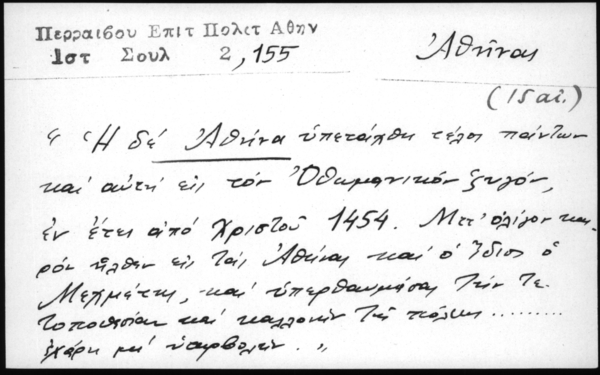 Περραιβου Επιτ Πολιτ Αθην
Ιστ Σουλ 2, 155
Ἀθῆναι
(15 αἰ.)
« Ἡ δέ Ἀθήνα ὑπετάχθη τέλος πάντων
καί αὐτή εἰς τόν Ὀθωμανικόν ζυγόν,
ἐν ἔτει ἀπό Χριστοῦ 1454. Μετ' ὀλίγον και-
ρόν ἦλθεν εἰς τάς Ἀθήνας καί ὁ ἴδιος ὁ
Μεχμέτης, καί ὑπερθαυμάσας τήν τε-
τοποθεσίαν καί καλλονήν τῆς πόλεως .........
ἐχάρη μέ ὑπερβολήν. »